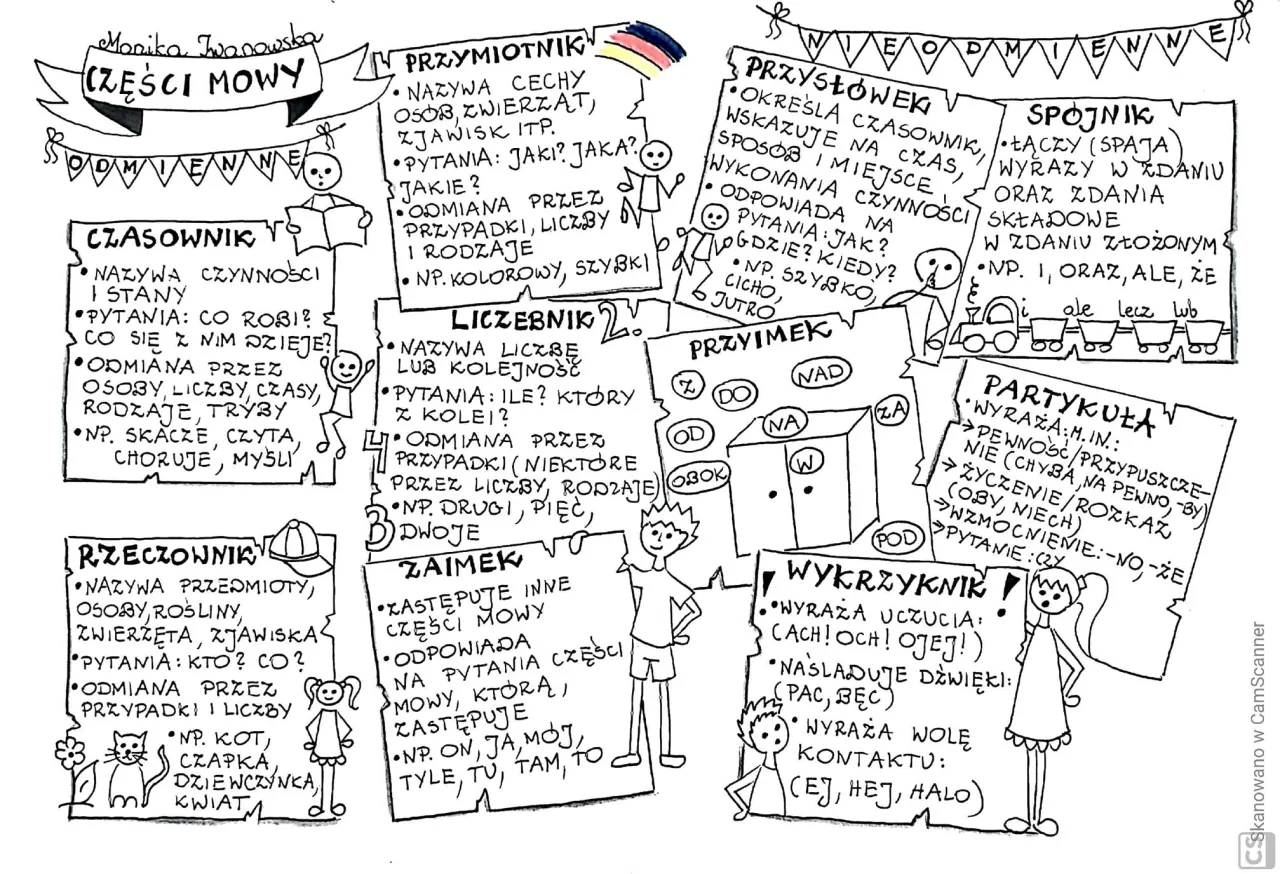 Monika Iwanowska
CZĘŚCI MOWY
ODMIENNE
CZASOWNIK
• NAZYWA CZYNNOŚCI
I STANY
• PYTANIA: CO ROBI?
CO SIĘ Z NIM DZIEJE?
• ODMIANA PRZEZ
OSOBY, LICZBY, CZASY,
RODZAJE, TRYBY
• NP. SKACZE, CZYTA,
CHORUJE, MYŚLI
RZECZOWNIK
• NAZYWA PRZEDMIOTY,
OSOBY, ROŚLINY,
ZWIERZĘTA, ZJAWISKA
• PYTANIA: KTO? CO?
• ODMIANA PRZEZ
PRZYPADKI I LICZBY
• NP. KOT,
CZAPKA,
DZIEWCZYNKA,
KWIAT
PRZYMIOTNIK
• NAZYWA CECHY
OSÓB, ZWIERZĄT,
ZJAWISK ITP.
• PYTANIA: JAKI? JAKA?
JAKIE?
• ODMIANA PRZEZ
PRZYPADKI, LICZBY
I RODZAJE
• NP. KOLOROWY, SZYBKI
LICZEBNIK 2.
• NAZYWA LICZBĘ
LUB KOLEJNOŚĆ
• PYTANIA: ILE? KTÓRY
Z KOLEI?
4 • ODMIANA PRZEZ
PRZYPADKI (NIEKTÓRE
PRZEZ LICZBY, RODZAJE)
• NP. DRUGI, PIĘĆ,
3 DWOJE
ZAIMEK
• ZASTĘPUJE INNE
CZĘŚCI MOWY
• ODPOWIADA
NA PYTANIA CZĘŚCI
MOWY, KTÓRĄ,
ZASTĘPUJE
• NP. ON, JA, MÓJ,
TYLE, TU, TAM, TO
NIEODMIENNE
PRZYSŁÓWEK
• OKREŚLA CZASOWNIK,
WSKAZUJE NA CZAS,
SPOSÓB I MIEJSCE
WYKONANIA CZYNNOŚCI
• ODPOWIADA NA
PYTANIA: JAK?
GDZIE? KIEDY?
• NP. SZYBKO,
CICHO,
JUTRO
SPÓJNIK
• ŁĄCZY (SPAJA)
WYRAZY W ZDANIU
ORAZ ZDANIA
SKŁADOWE
W ZDANIU ZŁOŻONYM
• NP. I, ORAZ, ALE, ŻE
i ale lecz lub
PRZYIMEK
Z DO NAD
OD NA ZA
OBOK W
POD
PARTYKUŁA
• WYRAŻA: M.IN.:
→ PEWNOŚĆ/PRZYPUSZCZE-
NIE (CHYBA, NA PEWNO, -BY)
→ ŻYCZENIE / ROZKAZ
(OBY, NIECH)
→ WZMOCNIENIE: -NO, -ŻE
→ PYTANIE: CZY
! WYKRZYKNIK !
• WYRAŻA UCZUCIA:
(ACH! OCH! OJEJ!)
• NAŚLADUJE DŹWIĘKI:
(PAC, BĘC)
• WYRAŻA WOLĘ
KONTAKTU:
(EJ, HEJ, HALO)
CS Skanowano w CamScanner